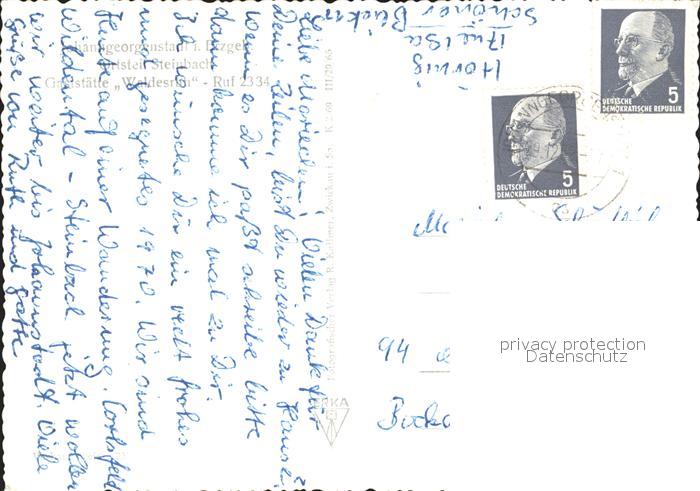 Johanngeorgenstadt i. Erzgeb.
Ortsteil Steinbach
Gaststätte „Waldesruh" - Ruf 2334
Liebe Marieden! Vielen Dank für
Deine Zeilen, bist Du wieder zu Hause?
Wenn es Dir paßt schreibe bitte
dann komme ich mal zu Dir.
Ich wünsche Dir ein recht frohes
und gesegnetes 1970. Wir sind
heute auf einer Wanderung. Carlsfeld
Wildental - Steinbach jetzt wollen
wir weiter bis Johannstadt. Viele
Grüße von Ruth und Gatte
K 2/69 III/29/65
Hornig
Schöner
DEUTSCHE
DEMOKRATISCHE REPUBLIK
5
DEUTSCHE
DEMOKRATISCHE REPUBLIK
5
94
privacy protection
Datenschutz